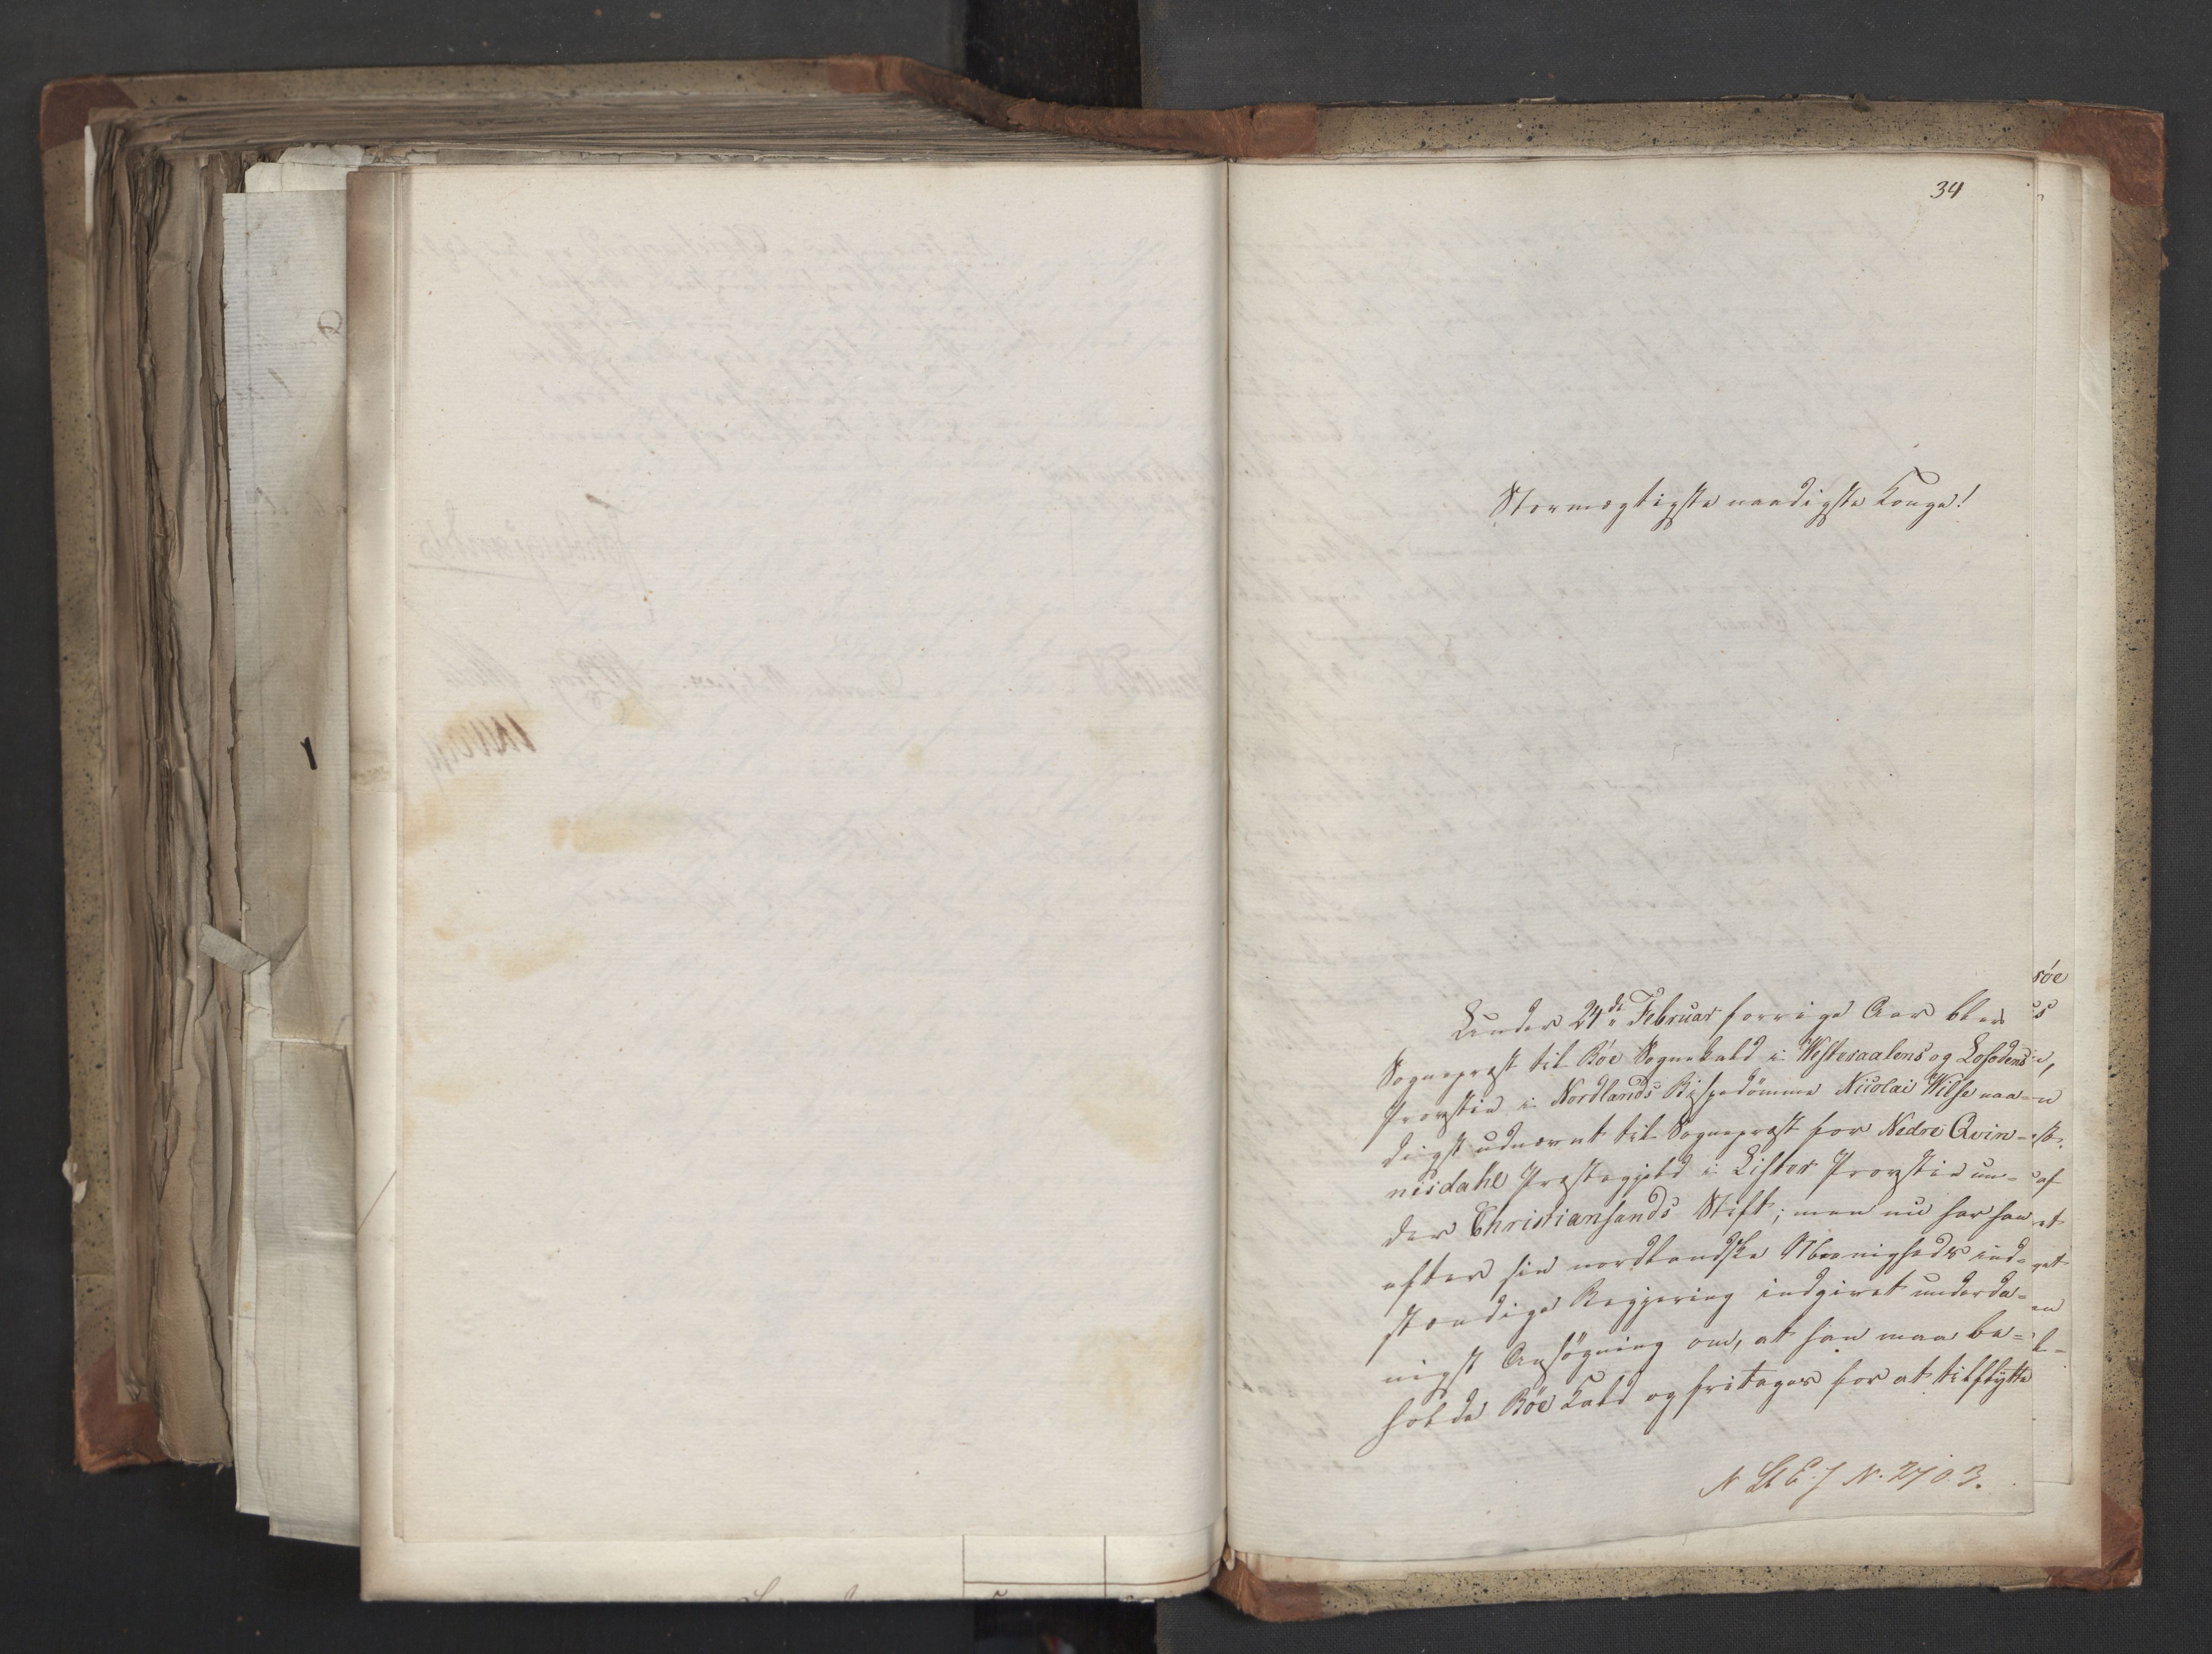 34
Stormægtigste naadigste Konge!
Under 24de Februar forrige Aar blev
Sogneprest til Böe Sognekald i Westeraalens og Lofodens
Provstie i Nordlands Bispedömme Nicolai Wilse naa=
digst udnævnt til Sogneprest for Nedre Qvin=
nesdahl Præstegjeld i Lister Provstie un=
der Christiansands Stift; men nu har han
efter sin nordlandske Meenigheds ind=
stændige Begjering indgivet underda=
nigst Ansögning om, at han maa be=
holde Böe Kald og fritages for at tilflytte
N. 2703.
söe